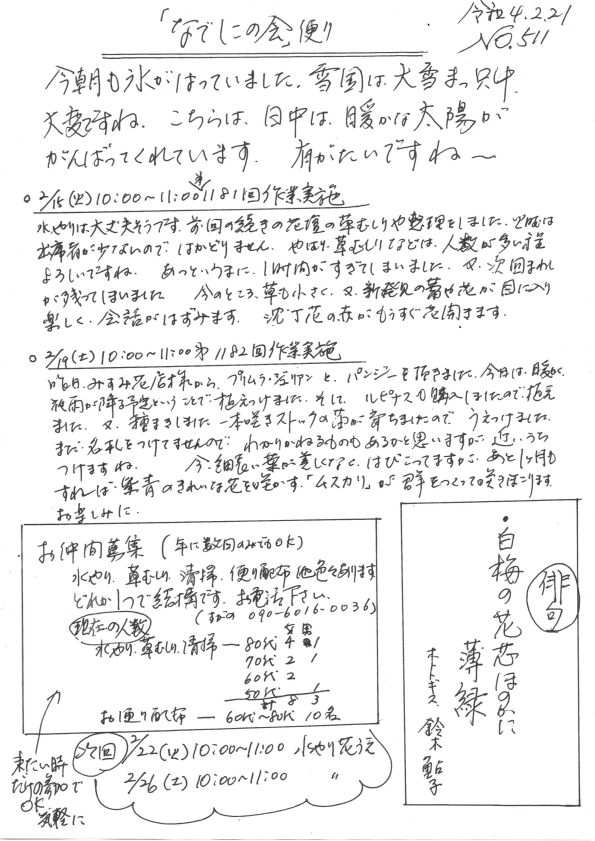 「なでしこの会」便り
令和4.2.21
No.511
今朝も氷がはっていました。雪国は大雪まっ只中、
大変ですね。こちらは、日中は、暖かな太陽が
がんばってくれています。有がたいですね〜
○2/15(火)10:00〜11:00 第1181回作業実施
水やりは大丈夫そうです。前回の続きの花壇の草むしりや整理をしました。
出席者が少ないので はかどりません。やはり、草むしりなどは、人数が多い程
よろしいですね。あっというまに、1時間がすぎてしまいました。又、次回まわし
が残ってしまいました 今のところ、草も小さく、又、新発見の蕾や花が目に入り
楽しく、会話がはずみます。沈丁花の赤がもうすぐ花開きます。
○2/19(土)10:00〜11:00 第1182回作業実施
昨日、みすみ花店様から、プリムラ・ジュリアンと、パンジーを頂きました。今日は、暖か、
夜雨が降る予定ということで植えつけました。そして、ルピナスの購入しましたので植え
ました。又、種まきしました一本咲きストックの苗が育ちましたので うえつけました。
まだ名札をつけてませんので わかりかねるものもあるかと思いますが、近いうち
つけますね。 今、細長い葉が美しくなく、はびこってますが、あと1ヶ月も
すれば、紫青のきれいな花を咲かす、「ムスカリ」が群をつくって咲きほこります
お楽しみに。
お仲間募集(年に数回のみでもOK)
水やり、草むしり、清掃、便り配布 他色々あります
どれか1つで結構です。お電話下さい。
(すがの 090-6016-0036)
現在の人数
女 男
水やり、草むしり、清掃 ― 80代 4 1
70代 2 1
60代 2
50代 1
計 8 3
お便り配布 ― 60代〜80代 10名
来たい時
だけの参加で
OK
気軽に
次回
2/22(火)10:00〜11:00 水やり 花うえ
2/26(土)10:00〜11:00 〃
俳句
・白梅の花芯ほのかに
薄緑
ホトトギス 鈴木 鮎子